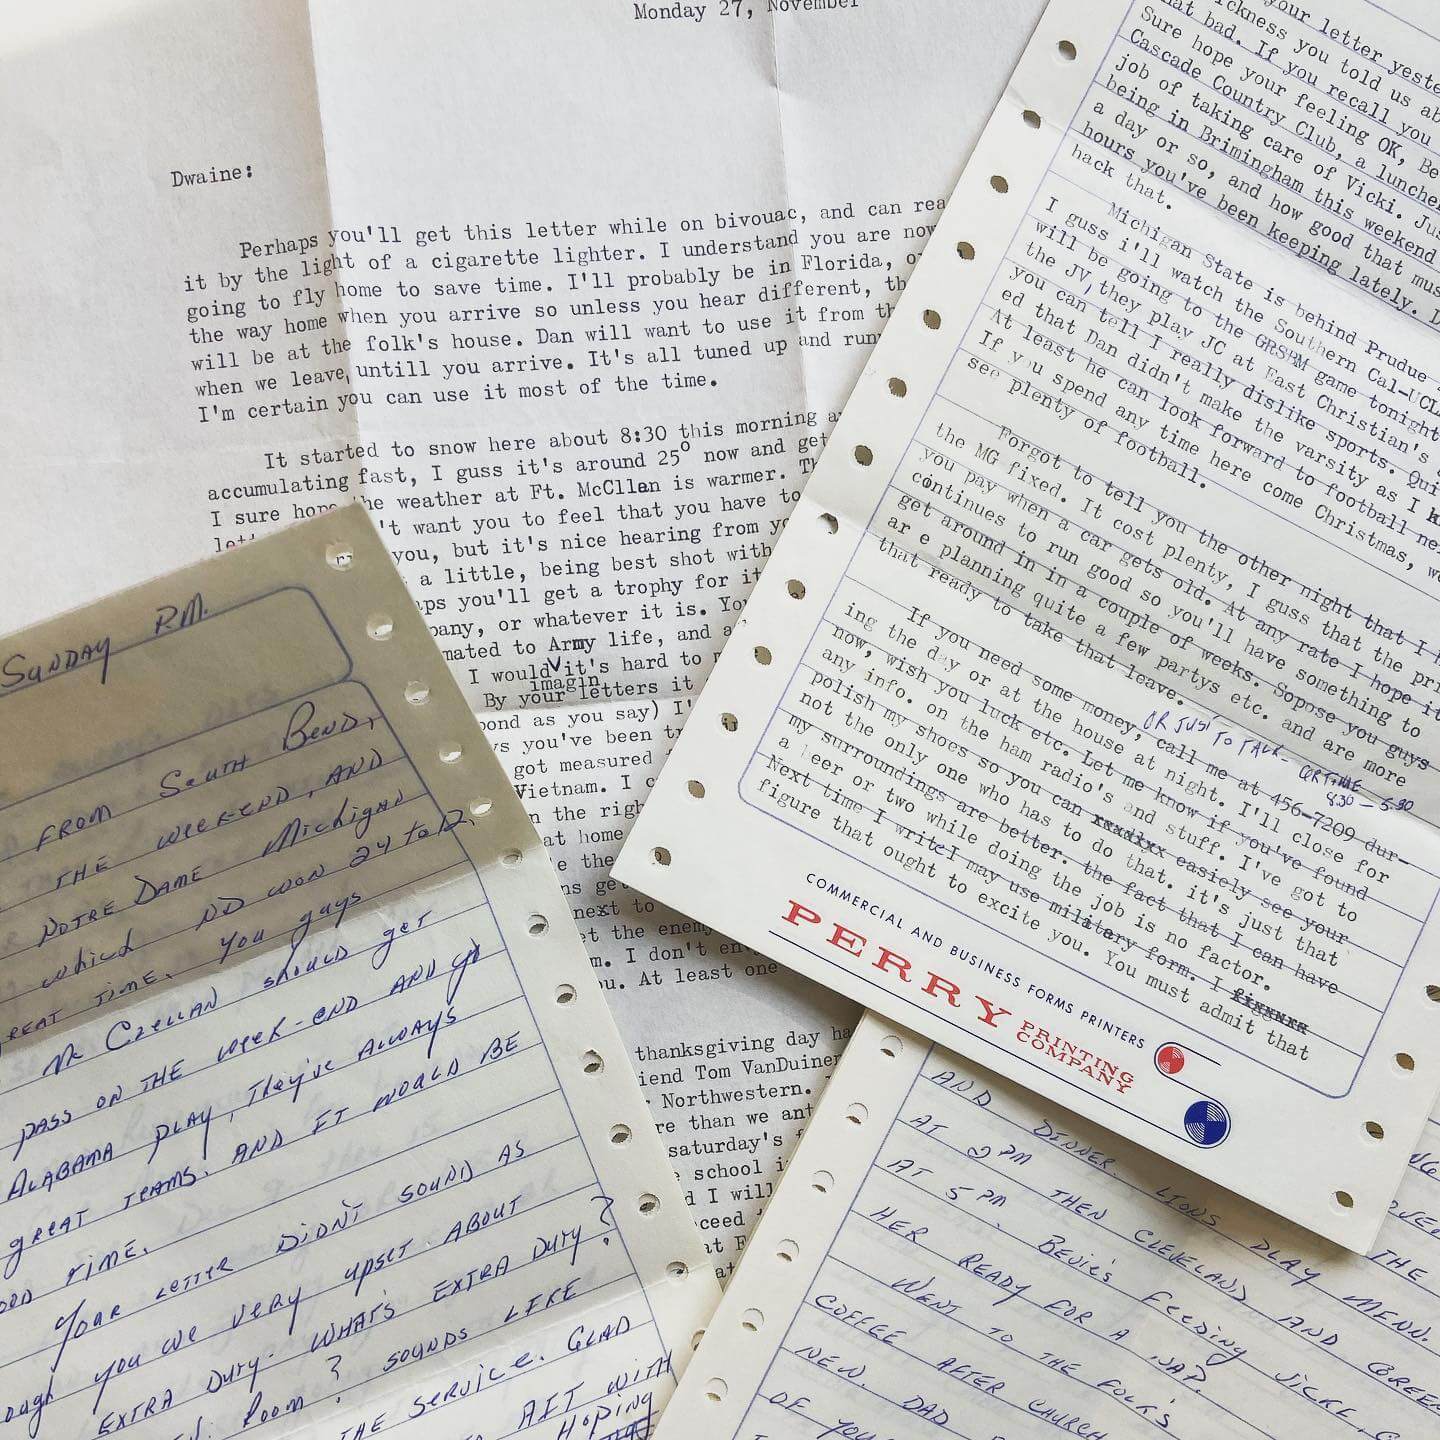 Monday 27, November
Dwaine:
Perhaps you'll get this letter while on bivouac, and can rea
it by the light of a cigarette lighter. I understand you are now
going to fly home to save time. I'll probably be in Florida, o
the way home when you arrive so unless you hear different, th
will be at the folk's house. Dan will want to use it from th
when we leave, untill you arrive. It's all tuned up and runn
I'm certain you can use it most of the time.
It started to snow here about 8:30 this morning a
accumulating fast, I guss it's around 25° now and get
I sure hope the weather at Ft. McCllan is warmer. Th
't want you to feel that you have to
you, but it's nice hearing from yo
a little, being best shot with
ps you'll get a trophy for it
pany, or whatever it is. Yo
mated to Army life, and a
I would imagin it's hard to
By your letters it
pond as you say) I'
ys you've been t
got measured
Vietnam. I c
n the righ
at home
e the
ns ge
next to
t the enem
m. I don't en
u. At least one
thanksgiving day ha
iend Tom VanDuinen
Northwestern.
re than we ant
saturday's f
e school i
d I will
ceed
at F
at
your letter yeste
ickness you told us ab
hat bad. If you recall you
Sure hope your feeling OK, Be
Cascade Country Club, a lunche
job of taking care of Vicki. Jus
being in Brimingham this weekend
a day or so, and how good that mus
hours you've been keeping lately. D
hack that.
Michigan State is behind Prudue
I guss i'll watch the Southern Cal-UCLA
will be going to the GRSHM game tonight
the JV, they play JC at East Christian's
you can tell I really dislike sports. Qui
ed that Dan didn't make the varsity as I k
At least he can look forward to football ne
If you spend any time here come Christmas, w
see plenty of football.
Forgot to tell you the other night that I h
the MG fixed. It cost plenty, I guss that the pri
you pay when a car gets old. At any rate I hope it
continues to run good so you'll have something to
get around in in a couple of weeks. Sopose you guys
ar e planning quite a few partys etc. and are more
that ready to take that leave.
OR JUST TO TALK -
OR TIME
8:30 - 5:30
If you need some money, call me at 456-7209 dur-
ing the day or at the house at night. I'll close for
now, wish you luck etc. Let me know if you've found
any info. on the ham radio's and stuff. I've got to
polish my shoes so you can easiely see your
my surroundings are better. the fact that I can have
not the only one who has to do that. it's just that
a beer or two while doing the job is no factor.
Next time I write I may use military form. I
figure that ought to excite you. You must admit that
COMMERCIAL AND BUSINESS FORMS PRINTERS
PERRY PRINTING COMPANY
SUNDAY P.M.
FROM SOUTH BEND,
THE WEEKEND, AND
NOTRE DAME MICHIGAN
which ND WON 24 to 12,
REAT TIME. YOU guys
Mc CLELLAN SHOULD get
PASS ON THE WEEK-END AND go
ALABAMA PLAY, They've ALWAYS
great TEAMS. AND IT WOULD BE
OOD TIME.
YOUR LETTER DIDN'T SOUND AS
ough you we very upset ABOUT
EXTRA DUTY. WHAT'S EXTRA Duty?
ROOM? SOUNDS LIKE
THE SERVICE. GLAD
AIT WITH
HOPING
AND DINNER. LIONS PLAY MINN.
AT 2 PM THEN CLEVELAND AND GREEN
AT 5 PM. BEVIE'S FEEDING VICKI,
HER READY FOR A NAP.
WENT TO THE FOLK'S
COFFEE AFTER CHURCH
NEW. DAD
OF YOU
THE